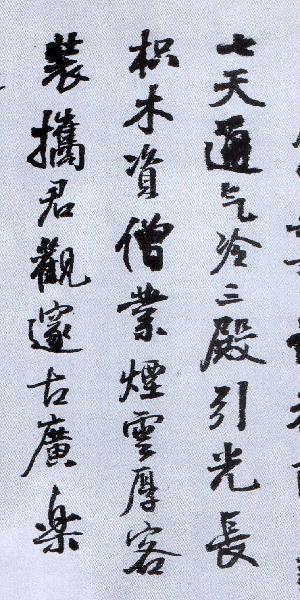 七天邇气冷三殿引光長
枳木資僧業煙雲厚客
裝攜君觀邃古廣樂